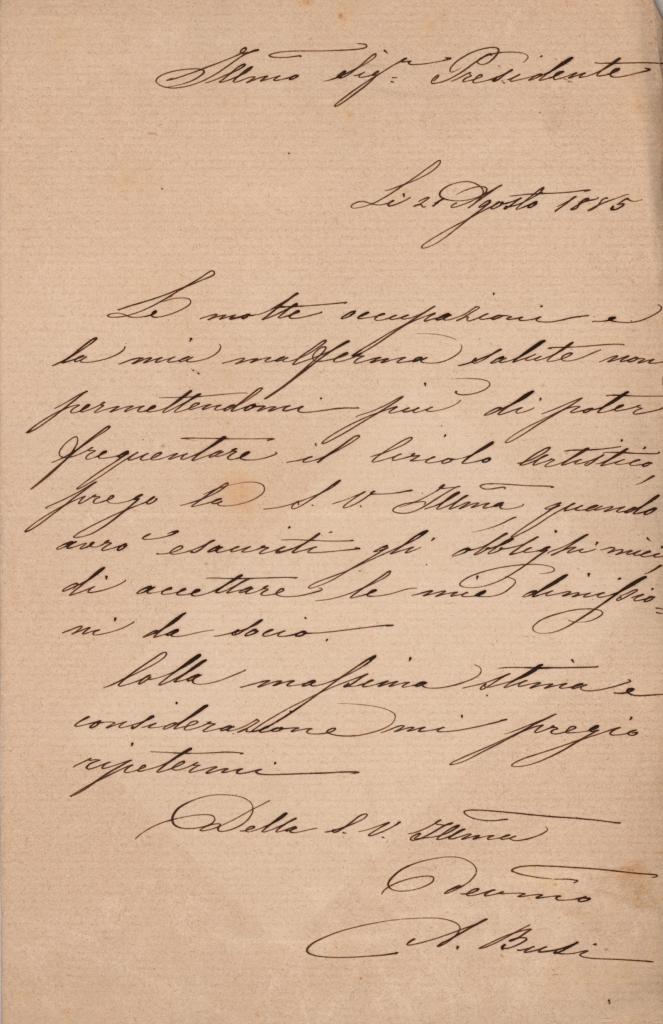 Illmo Sigr Presidente
Li 20 Agosto 1885
Le molte occupazioni e
la mia malferma salute non
permettendomi più di poter
frequentare il Circolo Artistico,
prego la S. V. Illma, quando
avrò esauriti gli obblighi miei,
di accettare le mie dimissio=
ni da socio.
Colla massima stima e
considerazione mi pregio
ripetermi
Della S. V. Illma
Devmo
A. Busi